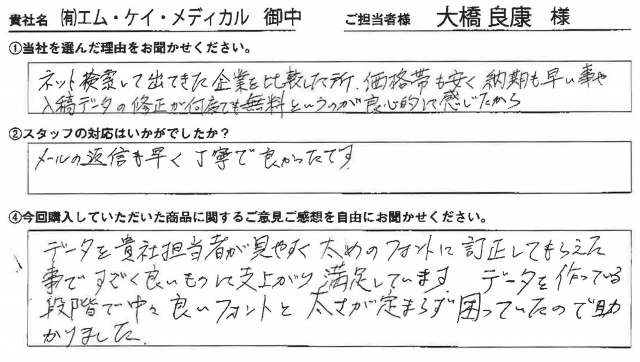 貴社名 ㈲エム・ケイ・メディカル 御中 ご担当者様 大橋 良康 様
①当社を選んだ理由をお聞かせください。
ネット検索して出てきた企業を比較した所、価格帯も安く納期も早い事や
入稿データの修正が何度でも無料というのが良心的に感じたから
②スタッフの対応はいかがでしたか？
メールの返信も早く丁寧で良かったです
④今回購入していただいた商品に関するご意見ご感想を自由にお聞かせください。
データを貴社担当者が見やすく太めのフォントに訂正してもらえた
事ですごく良いものに仕上がり満足しています データを作っている
段階で中々良いフォントと太さが定まらず困っていたので助
かりました.